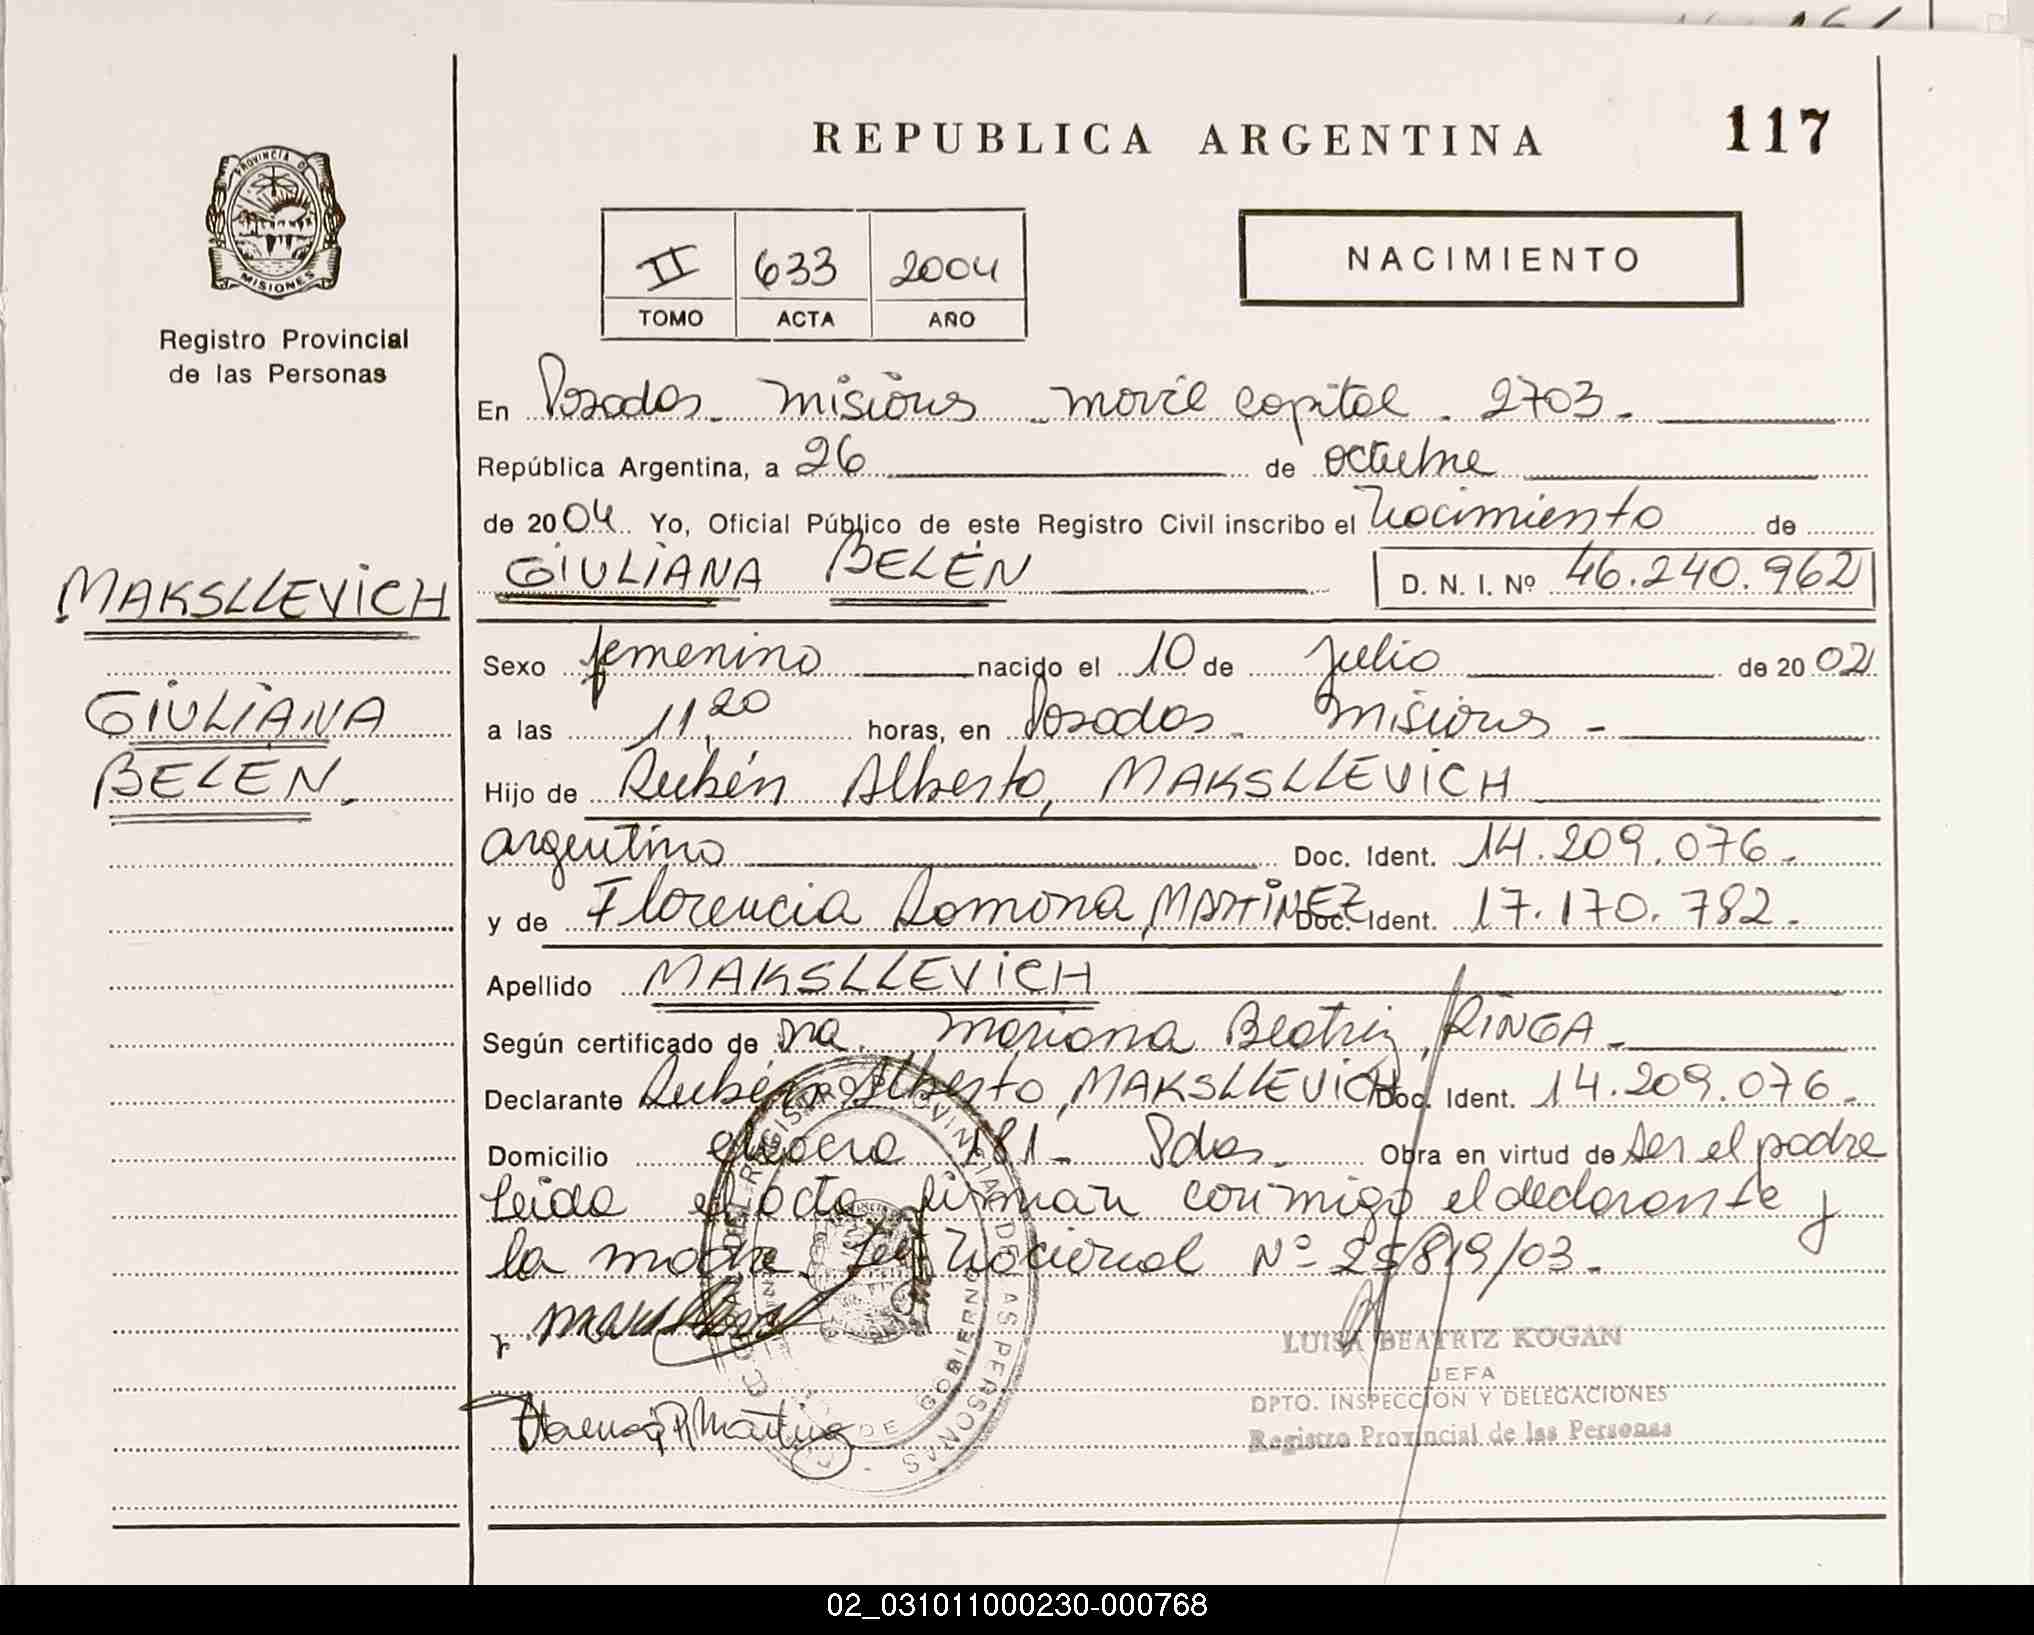 REPUBLICA ARGENTINA
117
PROVINCIA DE
MISIONES
Registro Provincial
de las Personas
II 633 2004
TOMO ACTA AÑO
NACIMIENTO
En Posadas Misiones movil capital 2703
República Argentina, a 26 de octubre
de 2004 Yo, Oficial Público de este Registro Civil inscribo el Nacimiento de
GIULIANA BELÉN D. N. I. Nº 46.240.962
MAKSLLEVICH
GIULIANA
BELÉN
Sexo femenino nacido el 10 de Julio de 2002
a las 11,20 horas, en Posadas Misiones
Hijo de Rubén Alberto, MAKSLLEVICH
argentino Doc. Ident. 14.209.076
y de Florencia Ramona, MARTINEZ Doc. Ident. 17.170.782
Apellido MAKSLLEVICH
Según certificado de Mariana Beatriz, RINGA
Declarante Rubén Alberto, MAKSLLEVICH Doc. Ident. 14.209.076
Domicilio 181 Pdas. Obra en virtud de ser el padre
Leida el acta firman conmigo el declarante y
la madre. Ley Nacional Nº 25819/03
LUISA BEATRIZ KOGAN
JEFA
DPTO. INSPECCION Y DELEGACIONES
Registro Provincial de las Personas
02_031011000230-000768